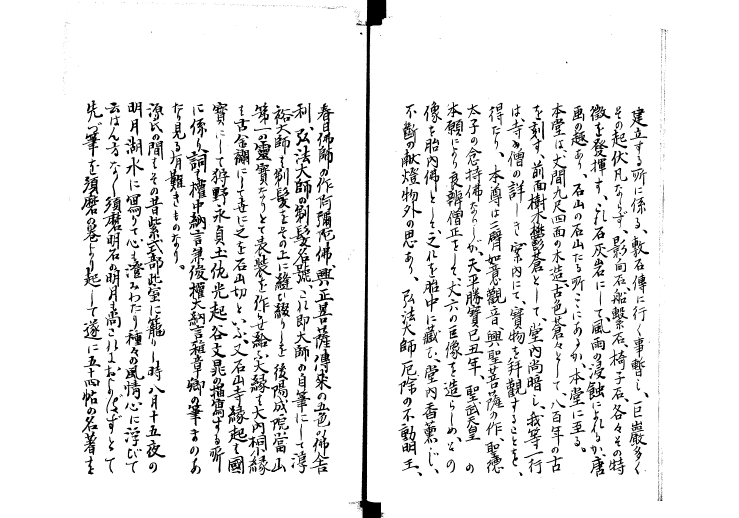 建立する所に係る、敷石傳に行く事暫し、巨巖多く
その起伏凡ならず、影向石船繋石、椅子石、各々その特
徴を發揮す、孔石灰岩にして風雨の浸蝕に作れるか、唐
画の趣あり、石山の石山たる所こにあるか、本堂に至る。
本堂は丈間九尺四面の木造、古色蒼々として八百年の古
を刻す、前面樹木欝蒼として、堂内尚暗し、我等一行
は、寺僧の詳しき案内にて、寳物を拜觀することを、
得たり、本尊は二臂如意觀音、興聖菩薩の作、聖德
太子の念持佛ならしが、天平勝寳己丑年、聖武天皇の
本願により良辨僧正をして、丈六の巨像を造らしめ、その
像を胎内佛として、之れを胎中に藏む、堂内香薫じ、
不斷の献燈物外の思あり、弘法大師厄除の不動明王、
春日佛師の作阿彌陀佛、興正菩薩傳來の五色佛舎
利、弘法大師の剃髪名號、これ即大師の自筆にして淳
祐大師も剃髪をその上に縫い綴りしを後陽成院當山
第一の靈寳なりとて表裝を作らせ給ふ大縁も大内桐小縁
も古金襴にして世に之を石山切といふ、又石山寺縁起も國
寳にして狩野永貞土佐光起谷文晁の描寫する所
に係り、詞も權中納言為後權大納言雅章卿の筆まのあ
たり見る有難きものなり。
源氏の間もその昔紫式部此室に籠りし時八月十五夜の
明月湖水に寫りて心も澄みわたり種々の風情心に浮びて
云はん方なし須磨明石の明月も高されにおとらずとて
先づ筆を須磨の巻より起して遂に五十四帖の名著を